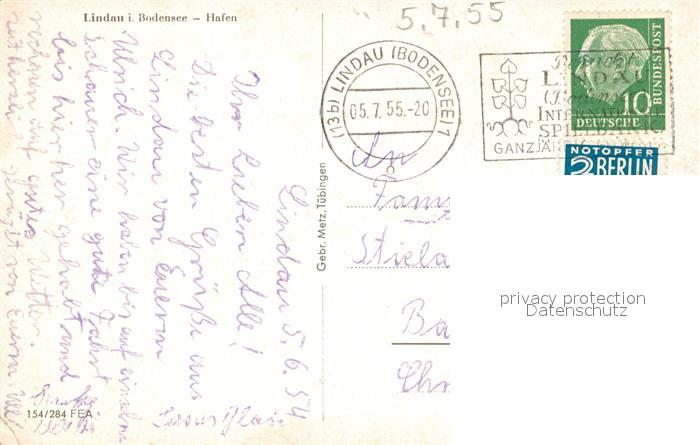 Lindau i. Bodensee – Hafen
5.7.55
(13b) LINDAU (BODENSEE) 1
05.7.55.-20
LINDAU
INTERNAT
SPIELBANK
GANZJÄHR
10
DEUTSCHE
BUNDESPOST
NOTOPFER
2 BERLIN
Gebr. Metz, Tübingen
Lindau 5.6.54
Ihr Lieben Alle!
Die besten Grüße aus
Lindau von Euerm
Ulrich. Wir haben bis auf einzelne
Schauer eine gute Fahrt
bis hier her gehabt und
rechnen auf gutes Wetter.
von Euerm
An
Fam
Stiela
Ba
Chr
privacy protection
Datenschutz
154/284 FEA